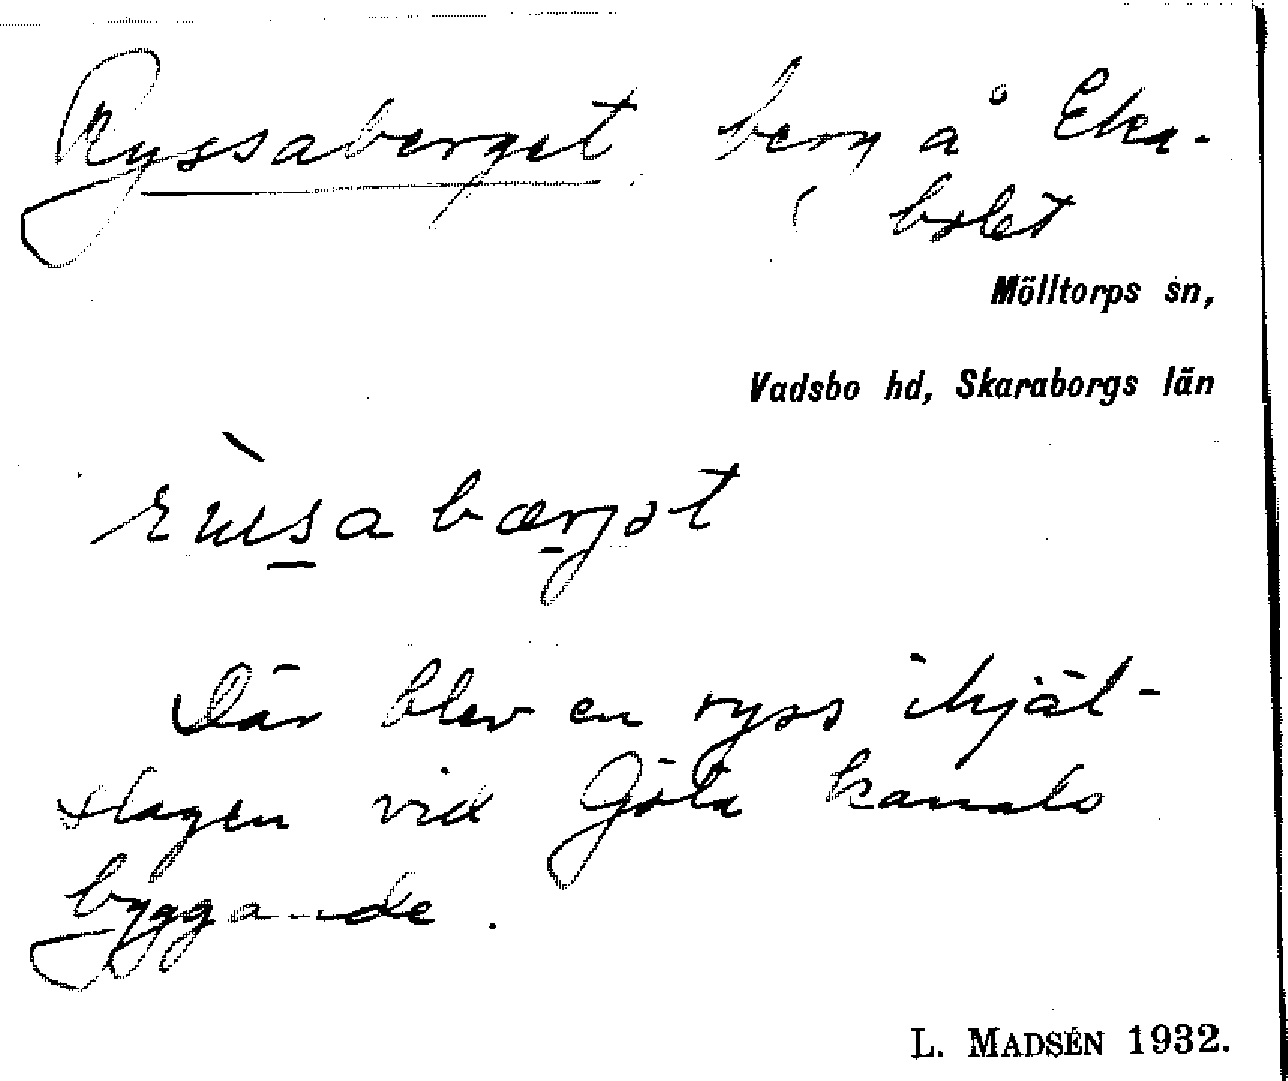 Ryssaberget berg å Eka-
bolet
Mölltorps sn,
Vadsbo hd, Skaraborgs län
Där blev en ryss ihjäl-
slagen vid Göta kanals
byggande.
L. MADSÉN 1932.